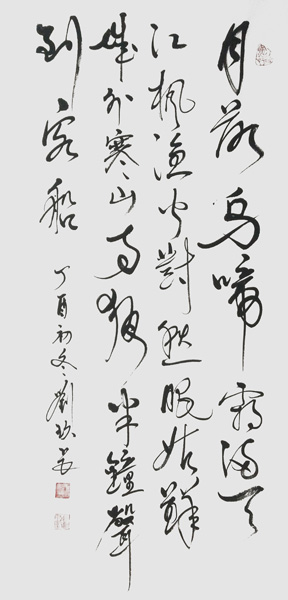 月落烏啼霜滿天
江楓漁火對愁眠姑蘇
城外寒山寺夜半鐘聲
到客船
丁酉初冬劉